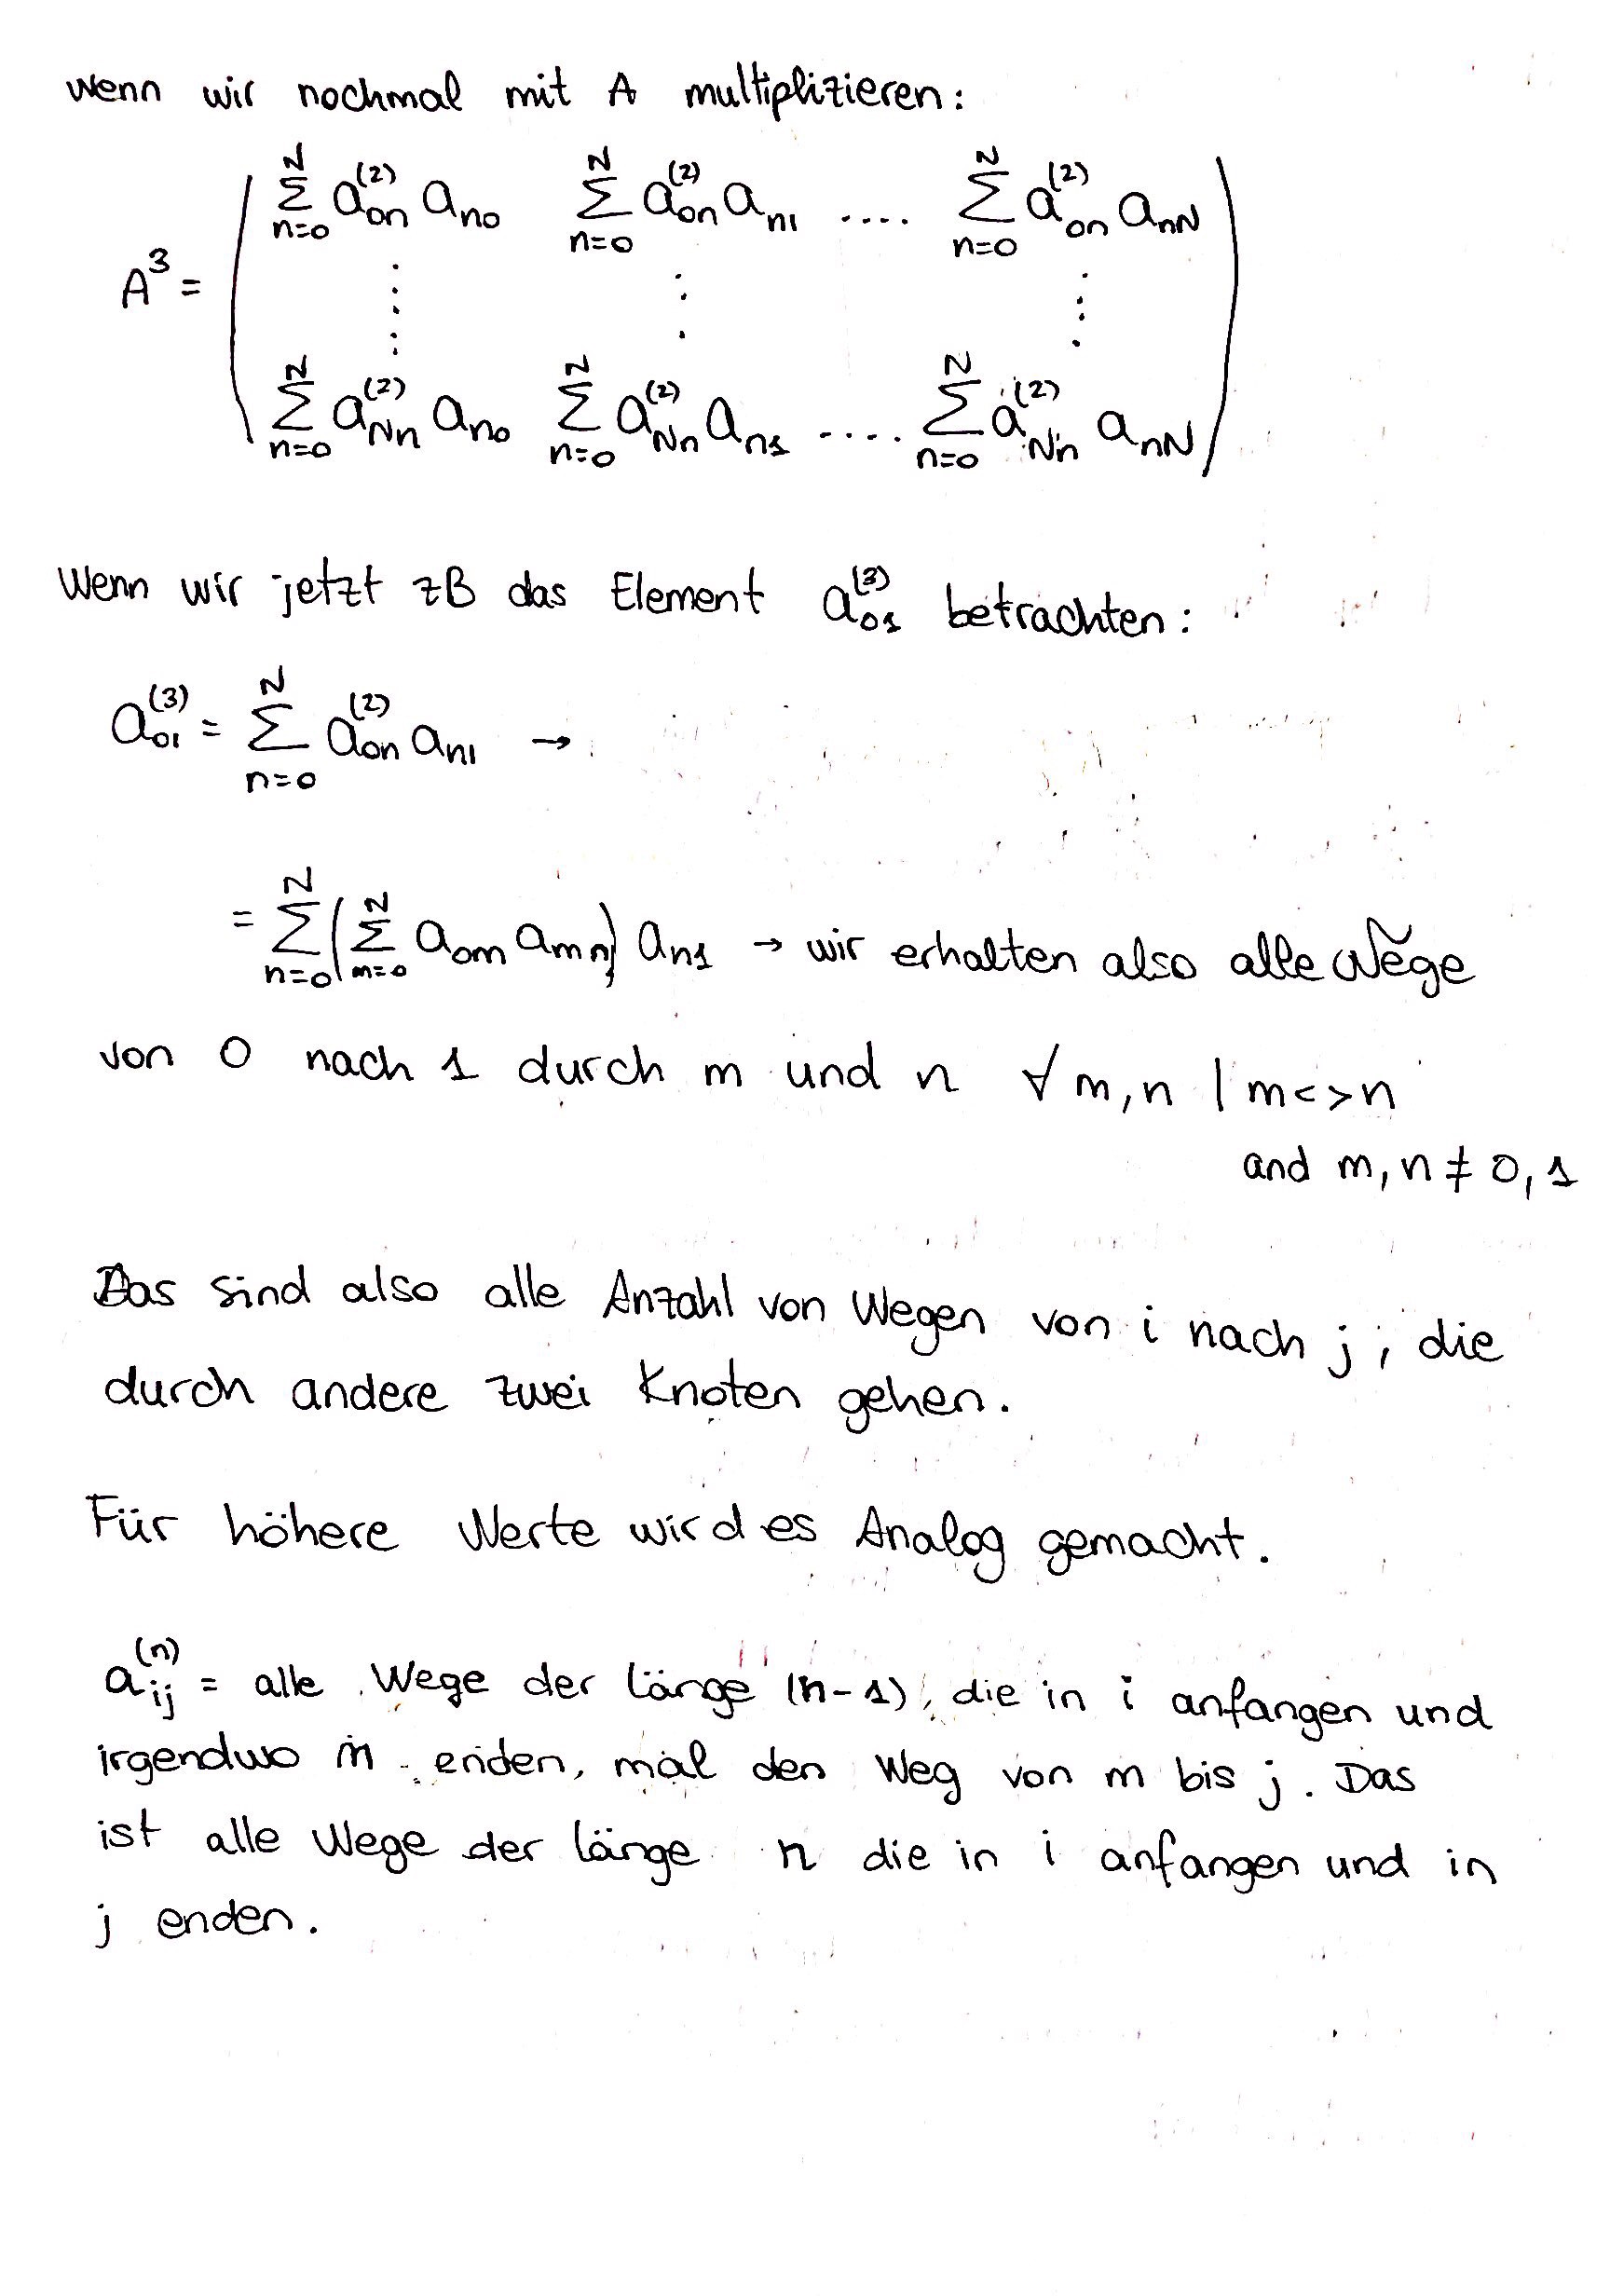 Wenn wir nochmal mit A multiplizieren:
A³ = ( ∑_{n=0}^{N} a_{0n}^{(2)} a_{n0} ∑_{n=0}^{N} a_{0n}^{(2)} a_{n1} .... ∑_{n=0}^{N} a_{0n}^{(2)} a_{nN}
⋮ ⋮ ⋮
∑_{n=0}^{N} a_{Nn}^{(2)} a_{n0} ∑_{n=0}^{N} a_{Nn}^{(2)} a_{n1} .... ∑_{n=0}^{N} a_{Nn}^{(2)} a_{nN} )
Wenn wir jetzt zB das Element a_{01}^{(3)} betrachten:
a_{01}^{(3)} = ∑_{n=0}^{N} a_{0n}^{(2)} a_{n1} →
= ∑_{n=0}^{N} ( ∑_{m=0}^{N} a_{0m} a_{mn} ) a_{n1} → wir erhalten also alle Wege
von 0 nach 1 durch m und n ∀ m,n | m<>n
and m,n ≠ 0,1
Das sind also alle Anzahl von Wegen von i nach j, die
durch andere zwei Knoten gehen.
Für höhere Werte wird es Analog gemacht.
a_{ij}^{(n)} = alle Wege der länge (n-1), die in i anfangen und
irgendwo m enden, mal den Weg von m bis j. Das
ist alle Wege der länge n die in i anfangen und in
j enden.